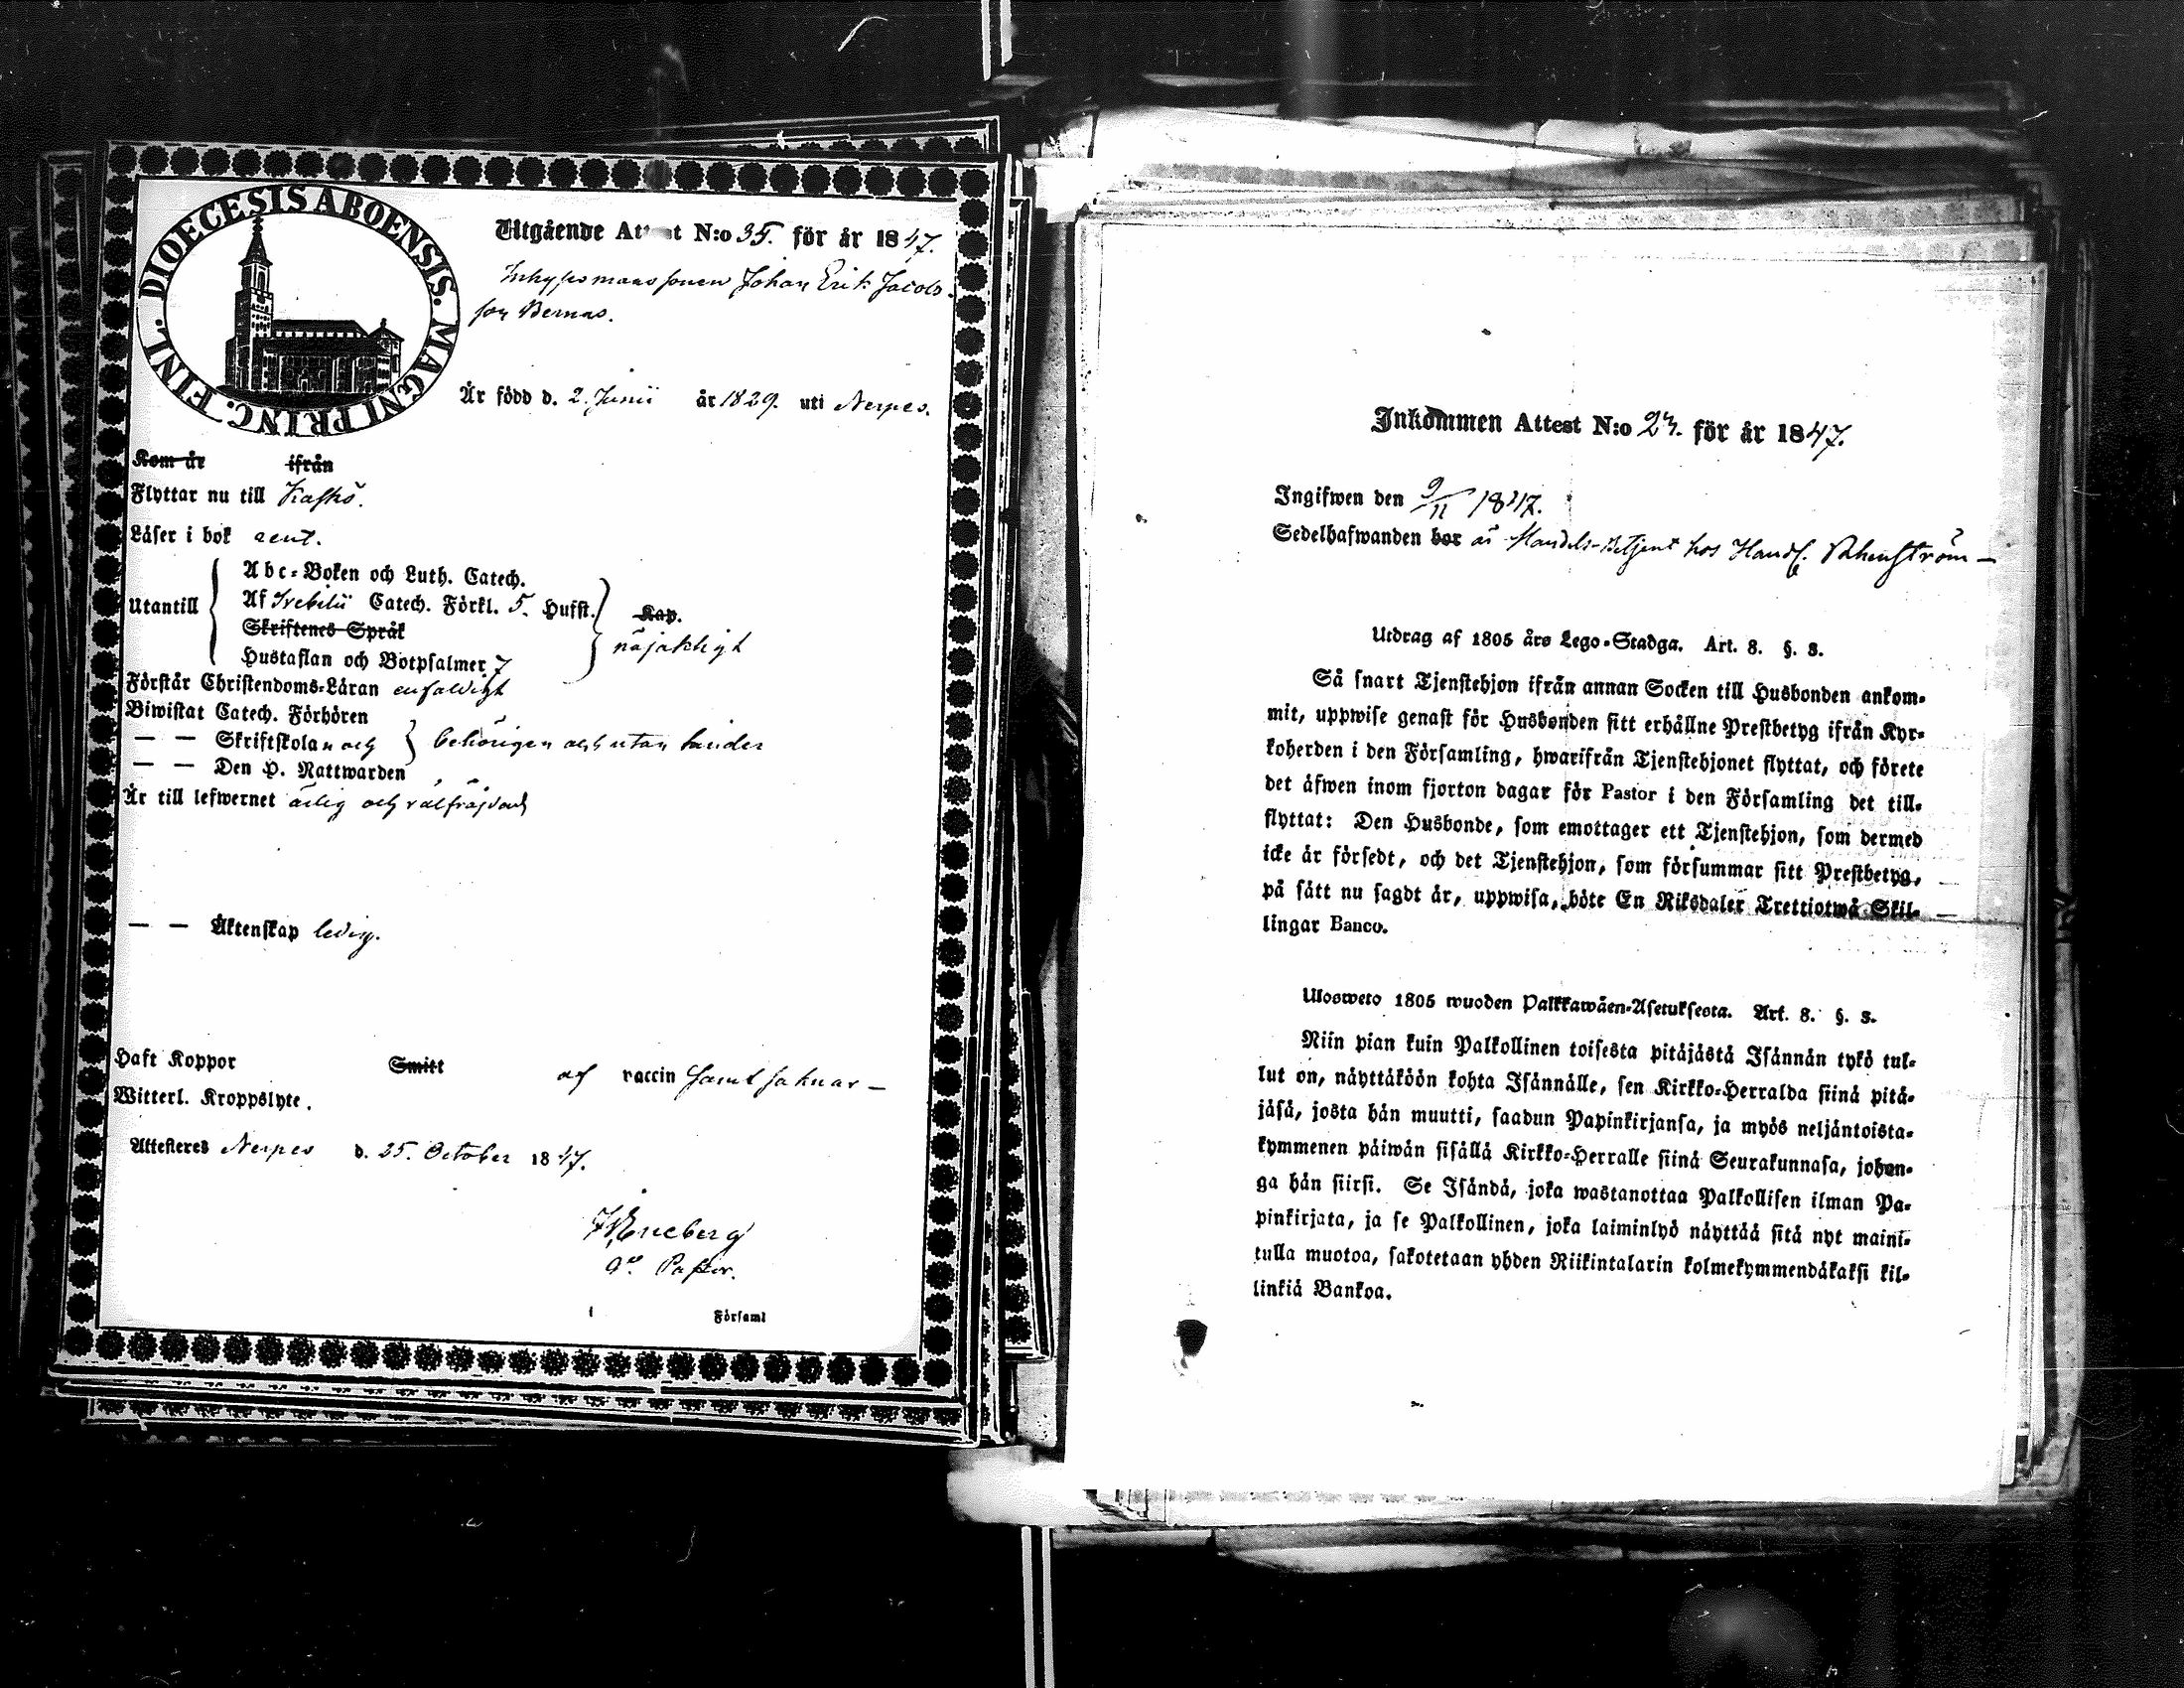 DIOECESIS ABOENSIS. MAGNI PRINC. FINL.
Utgående Attest N:o 35. för år 1847.
Inhysesmanssonen Johan Erik Jacobs-
son Bernas.
Är född d. 2. Junii år 1829. uti Nerpes.
Kom år ifrån
Flyttar nu till Kaskö.
Läser i bok rent.
Abc-Boken och Luth. Catech.
Utantill Af Svebilii Catech. Förkl. 5. Hufst. Kap.
Skriftenes Språk nöjaktligt
Hustaflan och Botpsalmer 7
Förstår Christendoms-Läran enfaldigt
Biwistat Catech. Förhören
— — Skriftskolan och behörigen och utan hinder
— — Den H. Nattwarden
Är till lefwernet ärlig och välfräjdad
— — Äktenskap ledig.
Haft Koppor Smitt af vaccin samt saknar —
Witterl. Kroppslyte.
Attesteres Nerpes d. 25. October 1847.
Eneberg
Pastor.
i Församl
Inkommen Attest N:o 24. för år 1847.
Ingifwen den 9/11 1847.
Sedelhafwanden bor är Handels-Betjent hos Handl.
Utdrag af 1805 års Lego-Stadga. Art. 8. §. 3.
Så snart Tjenstehjon ifrån annan Socken till Husbonden ankom-
mit, uppwise genast för Husbonden sitt erhållne Prestbetyg ifrån Kyr-
koherden i den Församling, hwarifrån Tjenstehjonet flyttat, och förete
det äfwen inom fjorton dagar för Pastor i den Församling det till-
flyttat: Den Husbonde, som emottager ett Tjenstehjon, som dermed
icke är försedt, och det Tjenstehjon, som försummar sitt Prestbetyg,
på sätt nu sagdt är, uppwisa, böte En Riksdaler Trettiotwå Skil-
lingar Banco.
Ulosweto 1805 wuoden Palkkawäen-Asetuksesta. Art. 8. §. 3.
Niin pian kuin Palkollinen toisesta pitäjästä Isännän tykö tul-
lut on, näyttäköön kohta Isännälle, sen Kirkko-Herralda siinä pitä-
jäsä, josta hän muutti, saadun Papinkirjansa, ja myös neljäntoista-
kymmenen päiwän sisällä Kirkko-Herralle siinä Seurakunnasa, johon-
ga hän siirsi. Se Isändä, joka wastanottaa Palkollisen ilman Pa-
pinkirjata, ja se Palkollinen, joka laiminlyö näyttää sitä nyt maini-
tulla muotoa, sakotetaan yhden Riikintalarin kolmekymmendäkaksi kil-
linkiä Bankoa.